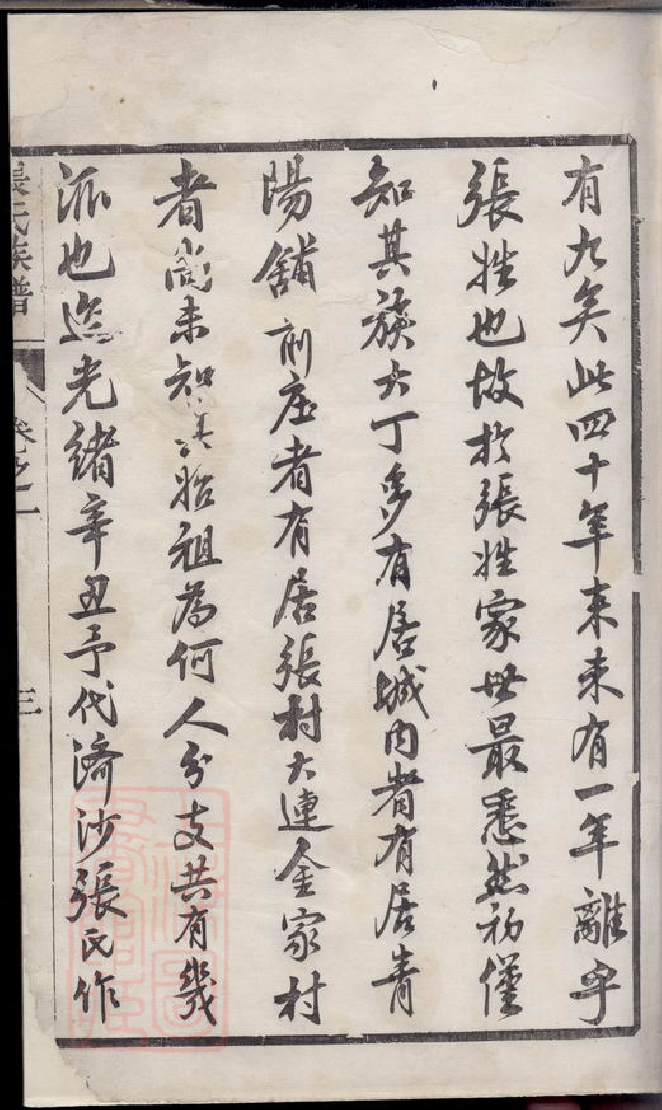 有九矣此四十年来未有一年離乎
張姓也故於張姓家世最悉然初僅
知其族大丁多有居城内者有居青
陽舖前庄者有居張村大連金家村
者尚未知其始祖為何人分支共有幾
派也迄光緒辛丑予代濟沙張氏作
張氏族譜
卷之二
三